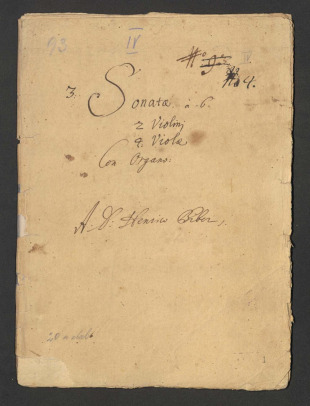 93 IV
3. Sonata à 6.
2 Violinj
2. Viole
Con Organo.
A. D. Henrico Biber,